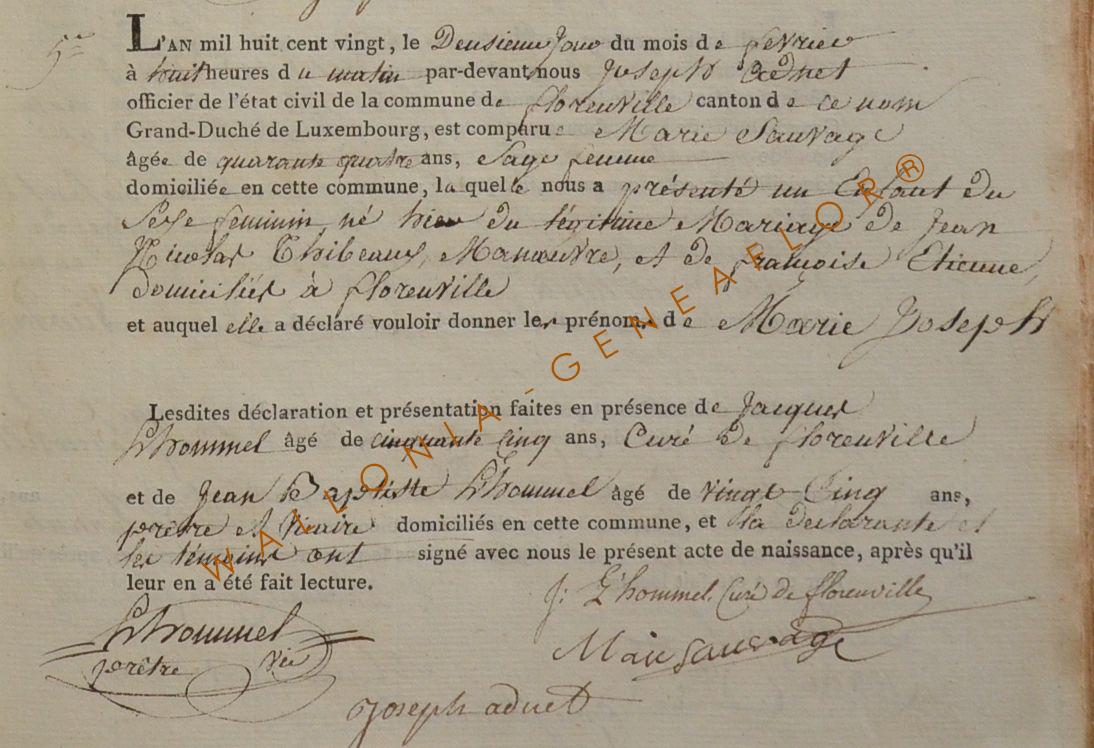 5e
L'AN mil huit cent vingt, le Deusieme Jour du mois de fevrier
à huit heures du matin par-devant nous Joseph Adnet
officier de l'état civil de la commune de florenville canton de ce nom
Grand-Duché de Luxembourg, est comparue Marie Sauvage
âgée de quarante quatre ans, Sage femme
domiciliée en cette commune, laquelle nous a présenté un Enfant du
Sexe feminin né hier du légitime Mariage de Jean
Nicolas Thibeaux, Manœuvre, et de françoise Etienne,
domiciliés à florenville
et auquel elle a déclaré vouloir donner les prénoms de Marie Joseph
Lesdites déclaration et présentation faites en présence de Jacques
L'hommel âgé de cinquante Cinq ans, Curé de florenville
et de Jean Baptiste L'hommel âgé de vingt Cinq ans,
prêtre et Vicaire domiciliés en cette commune, et la declarante et
les témoins ont signé avec nous le présent acte de naissance, après qu'il
leur en a été fait lecture.
J: L'hommel Curé de florenville
L'hommel
prêtre vic
Marie sauvage
Joseph adnet
WALLONIA-GENEAFLOR®